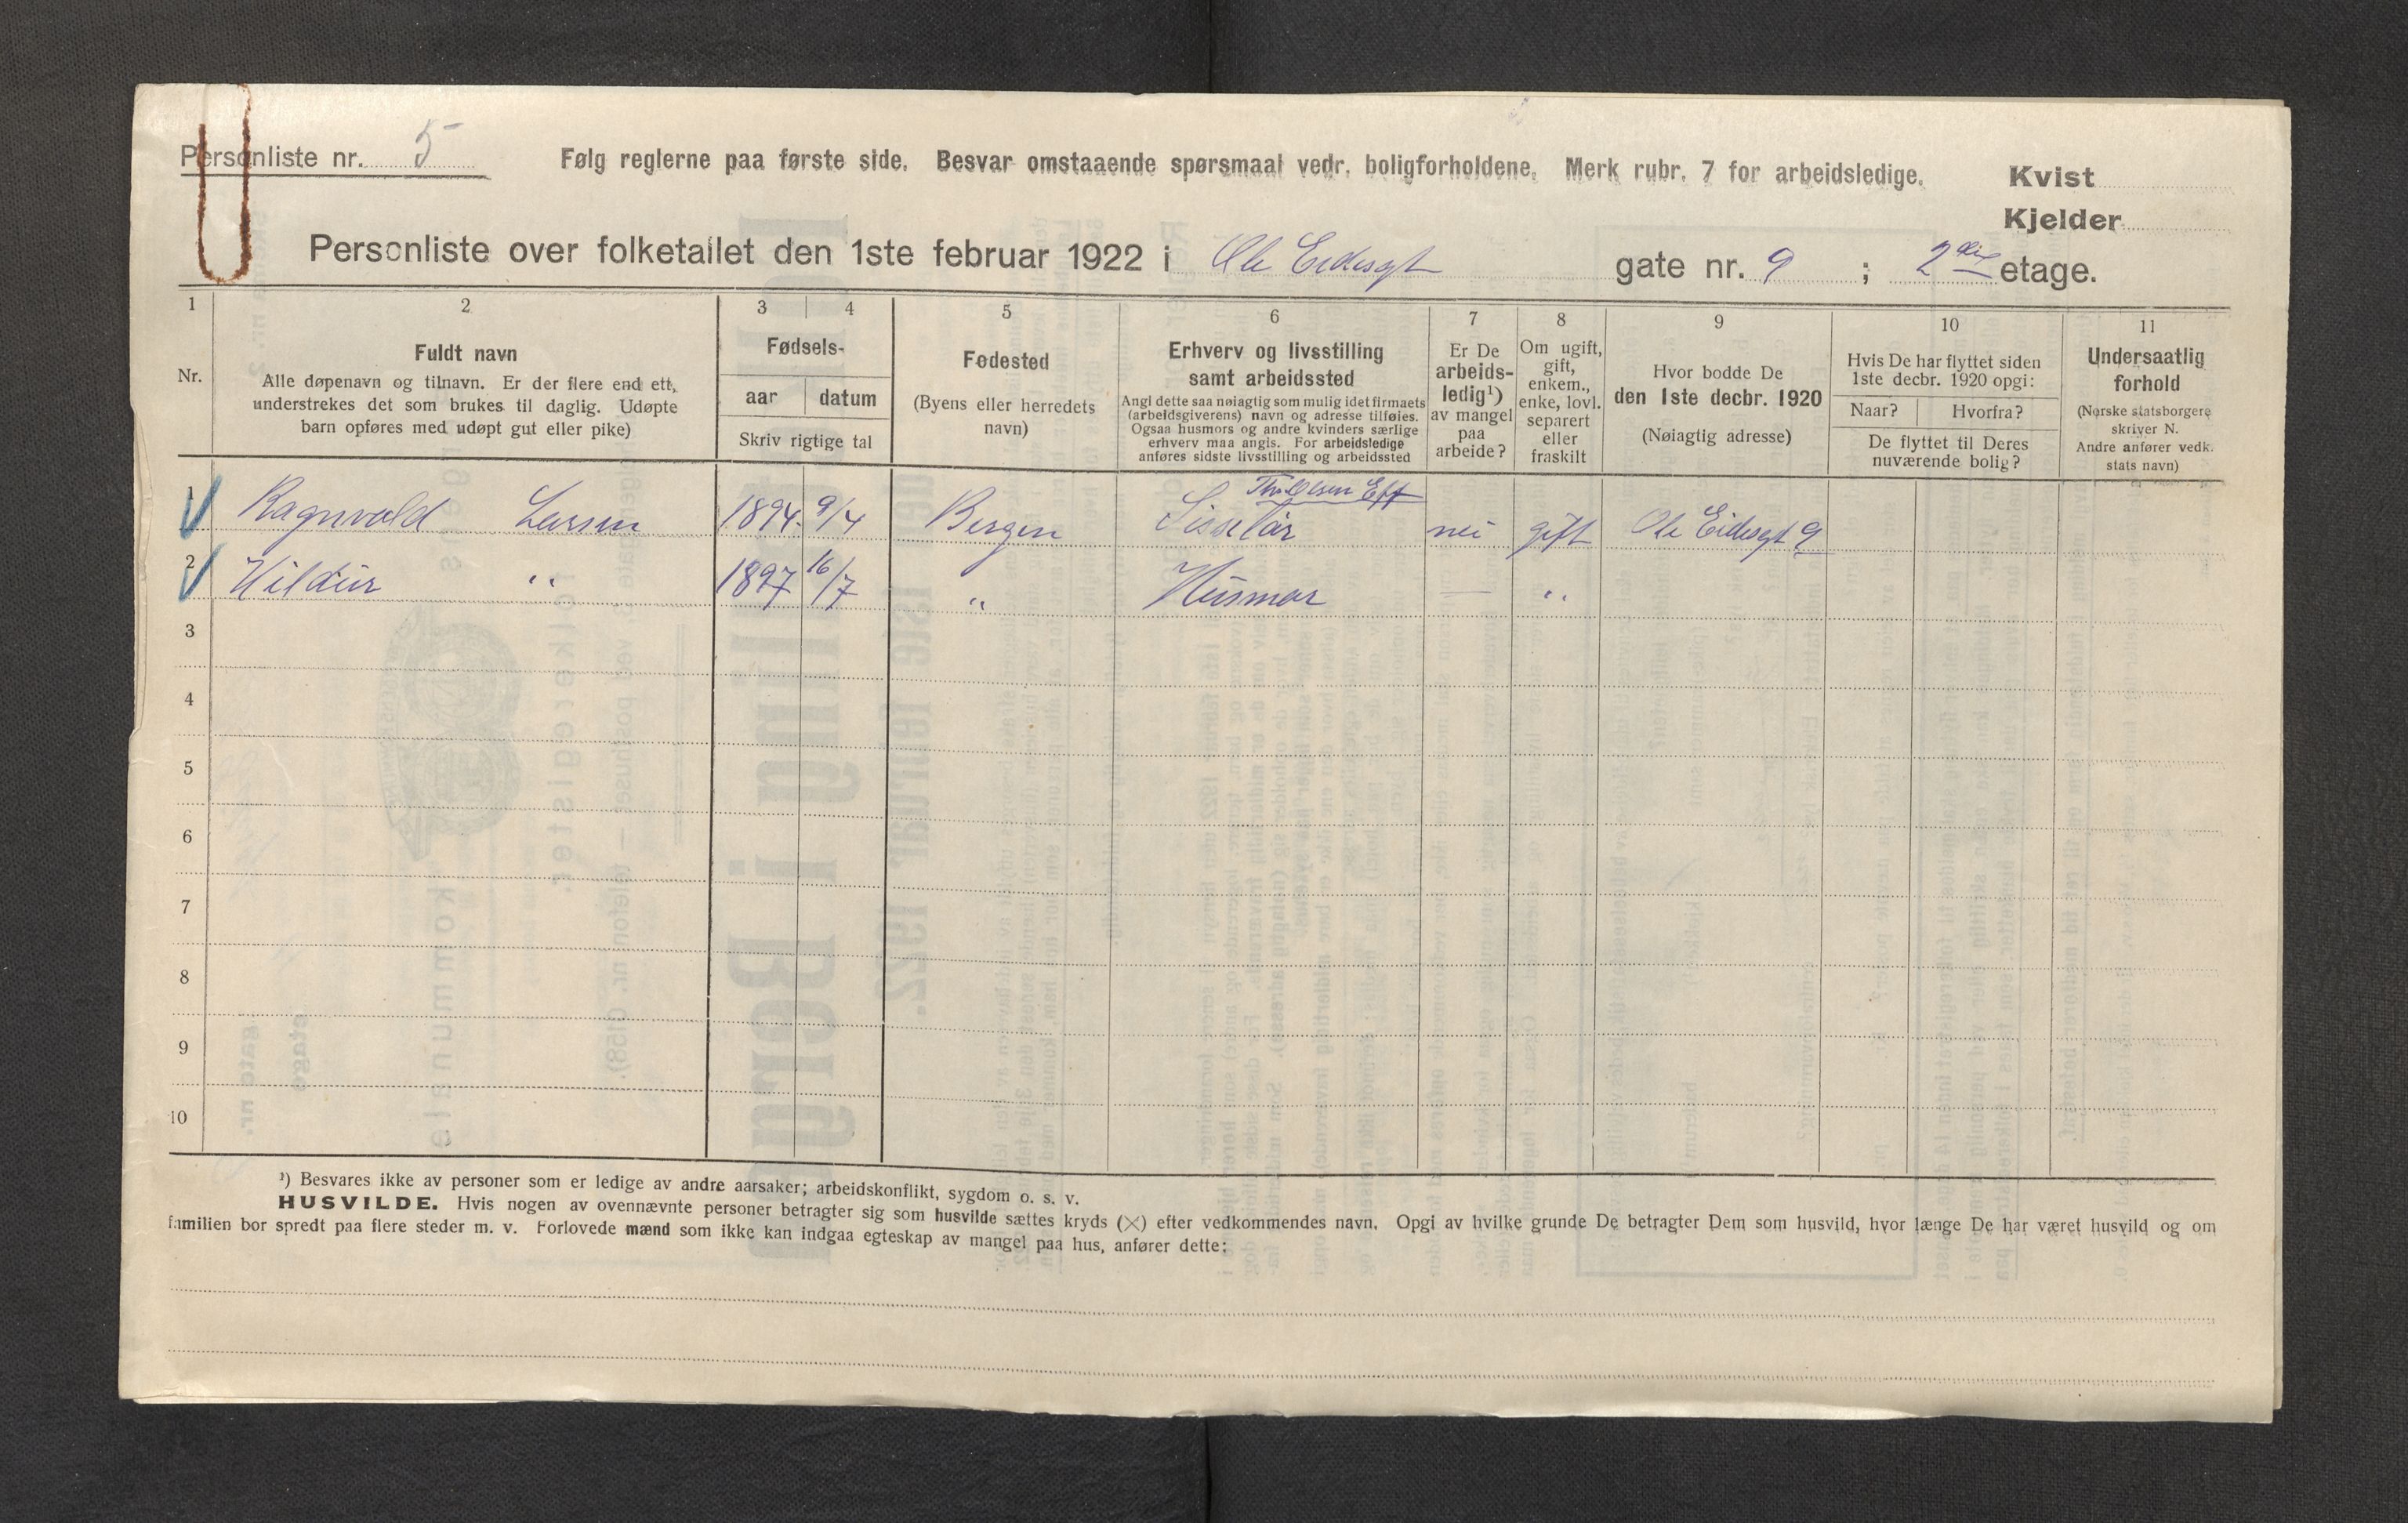 Personliste nr. 5
Følg reglerne paa første side. Besvar omstaaende spørsmaal vedr. boligforholdene. Merk rubr. 7 for arbeidsledige.
Kvist
Kjelder
Personliste over folketallet den 1ste februar 1922 i Ole Eidesgt gate nr. 9 ; 2 etage.
1 2 3 4 5 6 7 8 9 10 11
Nr.
Fuldt navn
Alle døpenavn og tilnavn. Er der flere end ett,
understrekes det som brukes til daglig. Udøpte
barn opføres med udøpt gut eller pike)
Fødsels-
aar datum
Skriv rigtige tal
Fødested
(Byens eller herredets
navn)
Erhverv og livsstilling
samt arbeidssted
Angi dette saa nøiagtig som mulig idet firmaets
(arbeidsgiverens) navn og adresse tilføies.
Ogsaa husmors og andre kvinders særlige
erhverv maa angis. For arbeidsledige
anføres sidste livsstilling og arbeidssted
Er De
arbeids-
ledig¹)
av mangel
paa
arbeide?
Om ugift,
gift,
enkem.,
enke, lovl.
separert
eller
fraskilt
Hvor bodde De
den 1ste decbr. 1920
(Nøiagtig adresse)
Hvis De har flyttet siden
1ste decbr. 1920 opgi:
Naar? Hvorfra?
De flyttet til Deres
nuværende bolig?
Undersaatlig
forhold
(Norske statsborgere
skriver N.
Andre anfører vedk.
stats navn)
Olsen Eff
1 Ragnvald Larsen 1894 9/4 Bergen nei gift Ole Eidesgt 9
2 Hildur " 1897 16/7 " Husmor — "
3
4
5
6
7
8
9
10
¹) Besvares ikke av personer som er ledige av andre aarsaker; arbeidskonflikt, sygdom o. s. v.
HUSVILDE. Hvis nogen av ovennævnte personer betragter sig som husvilde sættes kryds (X) efter vedkommendes navn. Opgi av hvilke grunde De betragter Dem som husvild, hvor længe De har været husvild og om
familien bor spredt paa flere steder m. v. Forlovede mænd som ikke kan indgaa egteskap av mangel paa hus, anfører dette: